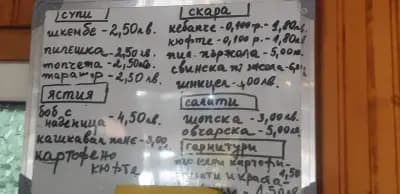 супи
шкембе - 2,50лв.
пилешка - 2,50лв.
топчета - 2,50лв.
таратор - 2,50лв.
ястия
боб с
наденица - 4,50лв.
кашкавал пане - 3,00
картофено
кюфте
скара
кебапче - 0,100гр. - 1,80лв.
кюфте - 0,100гр. - 1,80лв.
пил. пържола - 5,00лв.
свинска пържола
шницел - ,00лв.
салати
шопска - 3,00лв.
овчарска - 5,00лв.
гарнитури
картофи
1,50
1,50лв.